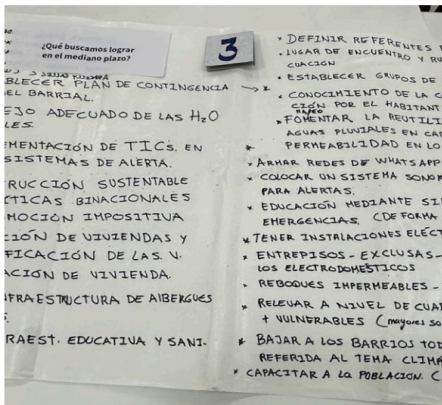 ¿Qué buscamos lograr
en el mediano plazo?
3
BLECER PLAN DE CONTINGENCIA
EL BARRIAL.
EJO ADECUADO DE LAS H₂O
LES.
EMENTACIÓN DE TICs. EN
SISTEMAS DE ALERTA.
RUCCIÓN SUSTENTABLE
CTICAS BINACIONALES
MOCIÓN IMPOSITIVA
CIÓN DE VIVIENDAS Y
FICACIÓN DE LAS. V.
ACIÓN DE VIVIENDA.
NFRAESTRUCTURA DE AlBERGUES
S.
RAEST. EDUCATIVA Y SANI-
* DEFINIR REFERENTES
* LUGAR DE ENCUENTRO Y RU
CUACIÓN
* ESTABLECER GRUPOS DE
* CONOCIMIENTO DE LA C
CIÓN POR EL HABITANT
MAPEO
* FOMENTAR LA REUTILI
AGUAS PLUVIALES EN CA
PERMEABILIDAD EN LO
* ARMAR REDES DE WHATSAPP
* COLOCAR UN SISTEMA SONOR
PARA ALERTAS.
* EDUCACIÓN MEDIANTE SI
EMERGENCIAS. (DE FORMA
* TENER INSTALACIONES ELÉCT
* ENTREPISOS - EXCLUSAS -
LOS ELECTRODOMÉSTICOS
* REBOQUES IMPERMEABLES -
* RELEVAR A NIVEL DE CUA
+ VULNERABLES (mayores so
* BAJAR A LOS BARRIOS TOD
REFERIDA AL TEMA CLIMA
* CAPACITAR A LA POBLACION. C